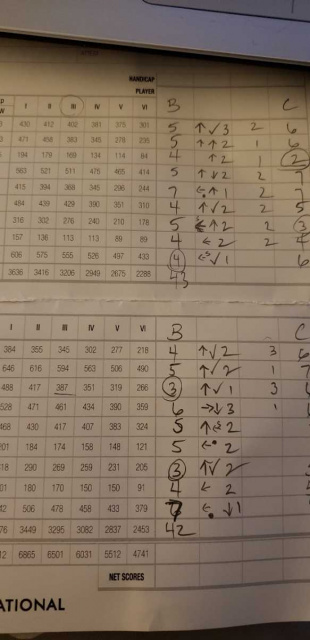 HANDICAP
PLAYER
I II III IV V VI B C
430 412 402 381 375 301 5 ↑ √ 3 2 6
471 458 383 345 278 235 5 ↑ ↑ 2 1 6
184 179 169 134 114 84 4 ↑ 2 1 2
563 521 511 475 465 414 5 ↑ ↓ 2 2 7
415 394 368 345 296 294 7 ↑ 1 2 7
484 439 429 390 351 310 4 ↑ √ 2 2 5
316 302 276 240 210 178 5 ← ↑ 2 2 3
157 136 113 113 89 89 4 ← 2 2 4
606 575 555 526 497 433 4 √ 1 6
3636 3416 3206 2949 2675 2288 43
I II III IV V VI B C
384 355 345 302 277 218 4 ↑ √ 2 3 6
646 616 594 563 506 490 5 ↑ √ 2 1 7
488 417 387 351 319 266 3 ↑ √ 1 3
528 471 461 434 390 359 6 → ↓ 3 1
468 430 417 407 383 324 5 2
201 184 174 158 148 121 5 ← 2
318 290 269 259 231 205 3 ↑ √ 2
180 170 150 150 91 4 ← 2
506 478 458 433 379 ← ↓ 1
3449 3295 3082 2837 2453 42
6865 6501 6031 5512 4741
NET SCORES
ATIONAL